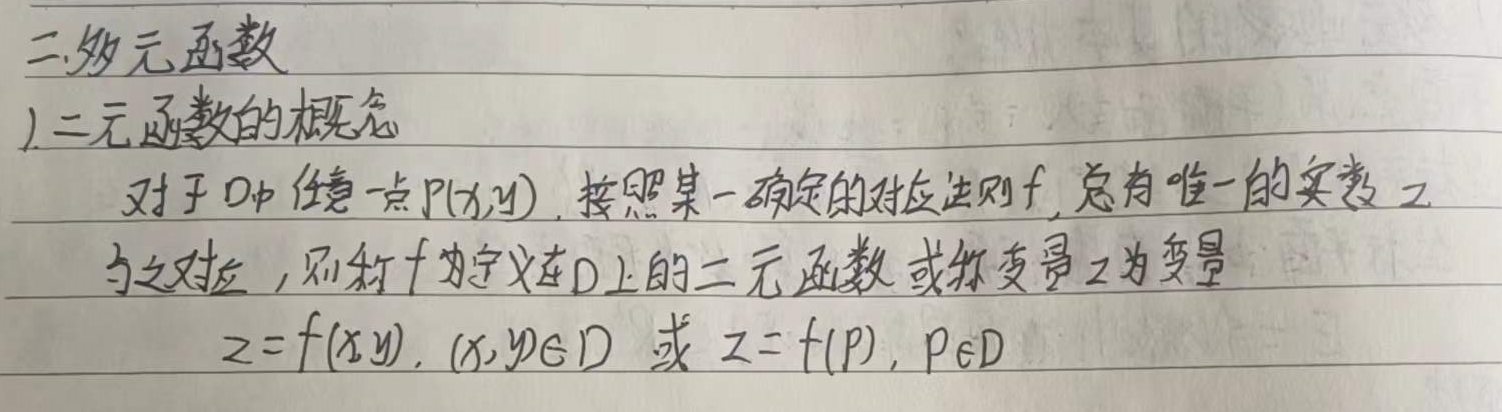 二.多元函数
1.二元函数的概念
对于D中任意一点P(x,y),按照某一确定的对应法则f,总有唯一的实数z
与之对应,则称f为定义在D上的二元函数或称变量z为变量
z=f(x,y), (x,y)∈D 或 z=f(P), P∈D